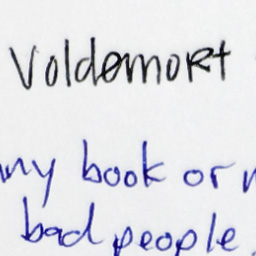 Voldemort
ny book or
bad people